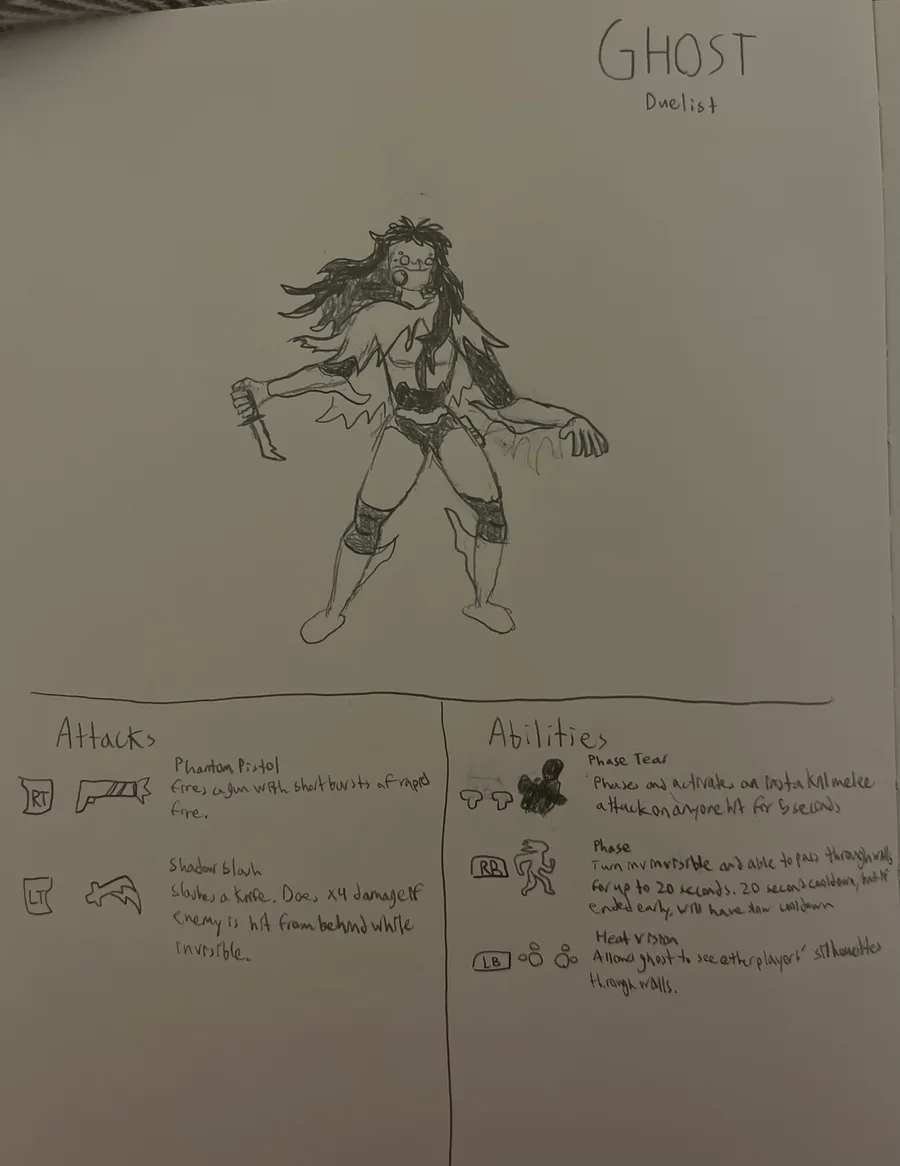 GHOST
Duelist
Attacks
RT
Phantom Pistol
fires a gun with short bursts of rapid
fire.
LT
Shadow Slash
Slashes a knife. Does x4 damage if
enemy is hit from behind while
invisible.
Abilities
Phase Tear
Phases and activates an insta kill melee
attack on anyone hit for 5 seconds
RB
Phase
Turn invisible and able to pass through walls
for up to 20 seconds. 20 second cooldown, but if
ended early, will have cooldown
LB
Heat vision
Allows ghost to see other players' silhouettes
through walls.